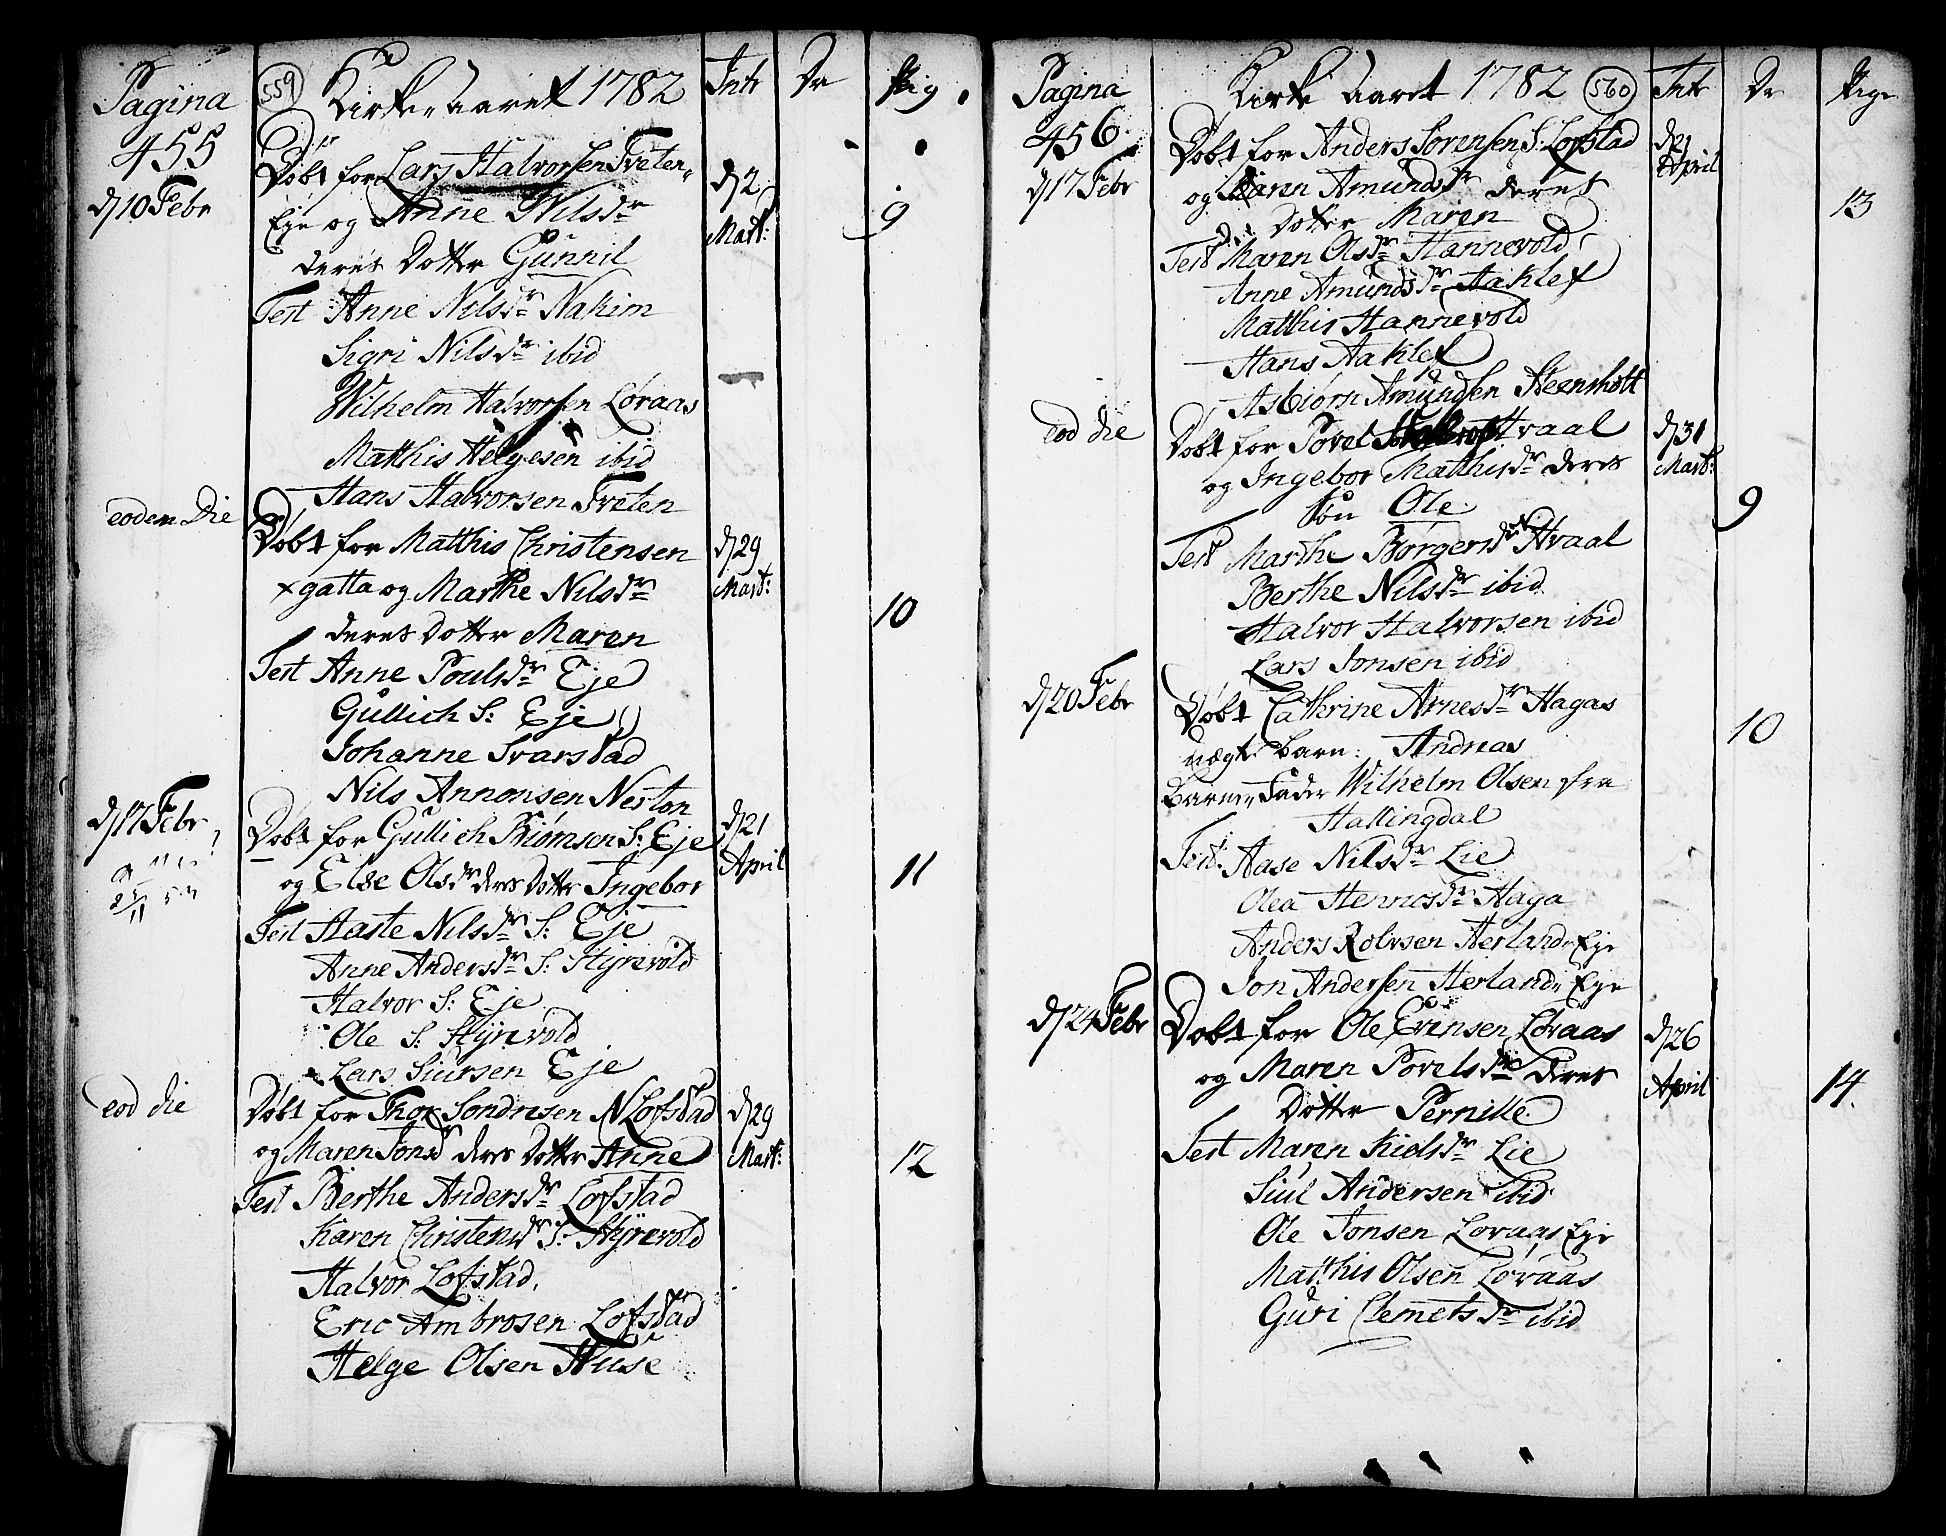 Pagina
455
559
Kirke-Aaret 1782
Intr
Dr
Pig
d/10 Febr
Døbt for Lars Halvorsen Tveten-
Eje og Anne Nilsdr
deres Dotter Gunnil
d/2
Mart:
9
Test Anne Nilsdr Nakim
Sigri Nilsdr ibid
Wilhelm Halvorsen Løraas
Matthis Helgesen ibid
Hans Halvorsen Tveten
eodem die
Døbt for Matthis Christensen
xgatta og Marthe Nilsdr
deres Dotter Maren
d/29
Mart:
10
Test Anne Poulsdr Eje
Gullich S: Eje
Johanne Svarstad
Nils Annonsen Neston
d/17 Febr
Døbt for Gullich Biørnsen S: Eje
og Else Olsdr deres Dotter Ingebor
d/21
April
11
Test Aaste Nilsdr S: Eje
Anne Andersdr S: Styrevold
Halvor S: Eje
Ole S: Styrevold
Lars Siursen Eje
eod die
Døbt for Thor Sondresen N Lofstad
og Maren Jonsd deres Dotter Anne
d/29
Mart:
12
Test Berthe Andersdr Lofstad
Karen Christensdr S: Styrevold
Halvor Lofstad,
Eric Ambrosen Lofstad
Helge Olsen Huse
Pagina
456
Kirke Aaret 1782
560
Intr
Dr
Pige
d/17 Febr
Døbt for Anders Sørensen S: Lofstad
og Karen Amundsdr deres
Dotter Maren
d/21
April
13
Test Maren Olsdr Hannevold
Anne Amundsdr Aaklef
Matthis Hannevold
Hans Aaklef
Asbiørn Amundsen Steenshott
eod die
Døbt for Povel Hvaal
og Ingebor Matthisdr deres
Søn Ole
d/31
Mart:
9
Test Marthe Børgersdr Hvaal
Berthe Nilsdr ibid
Halvor Halvorsen ibid
Lars Jonsen ibid
d/20 Febr
Døbt Cathrine Arnesdr Hagas
uægte Barn: Andreas
10
Barnets Fader Wilhelm Olsen fra
Hallingdal
Test: Aase Nilsdr Lie
Olea Hennesdr Haga
Anders Rolvsen Herland-Eje
Jon Andersen Herland-Eje
d/24 Febr
Døbt for Ole Evensen Løraas
og Maren Povelsdr deres
Dotter Pernille
d/26
April
14.
Test Maren Kielsdr Lie
Siul Andersen ibid
Ole Jonsen Løraas Eje
Matthis Olsen Løraas
Guri Clemetsdr ibid